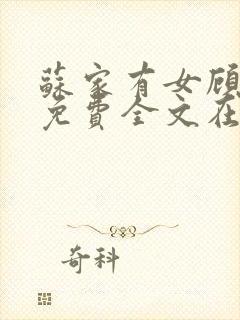 蘇家有女顧
免費全文在
奇科